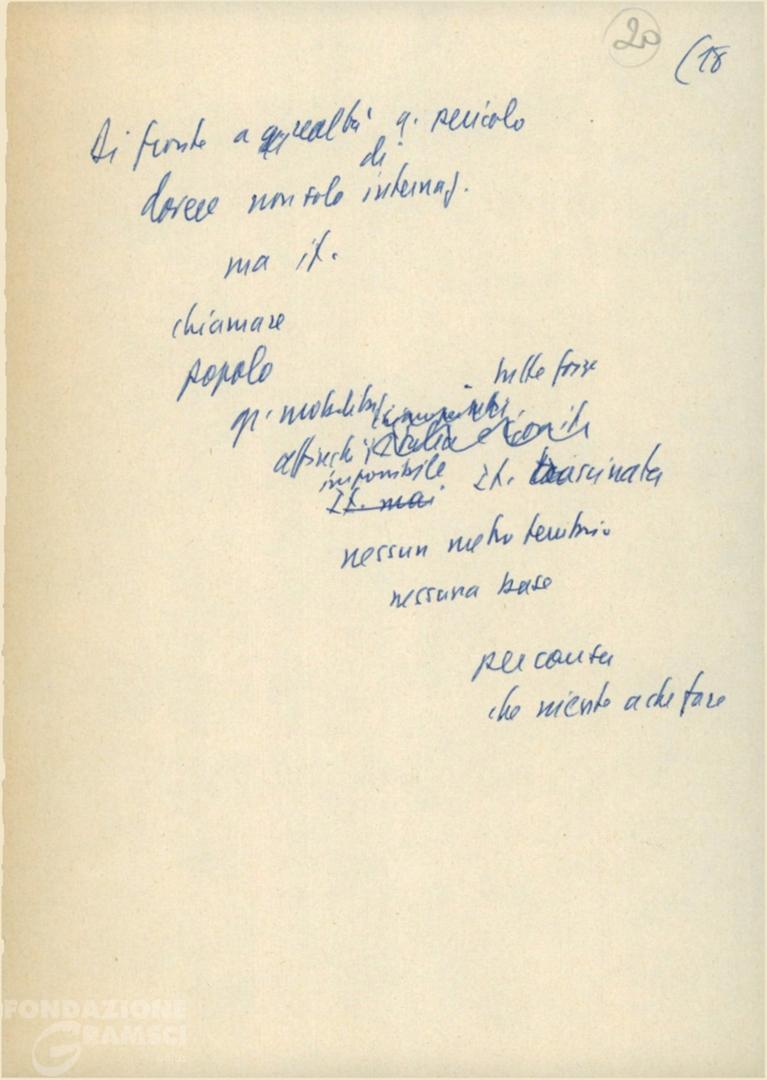 20
(18
Di fronte a realtà q. pericolo
di
dovere non solo internaz.
ma it.
chiamare
popolo
tutte forze
q. mobilitaz.
affinché
impossibile
It. mai It. trascinata
nessun metro territorio
nessuna base
per causa
che niente a che fare
FONDAZIONE
GRAMSCI